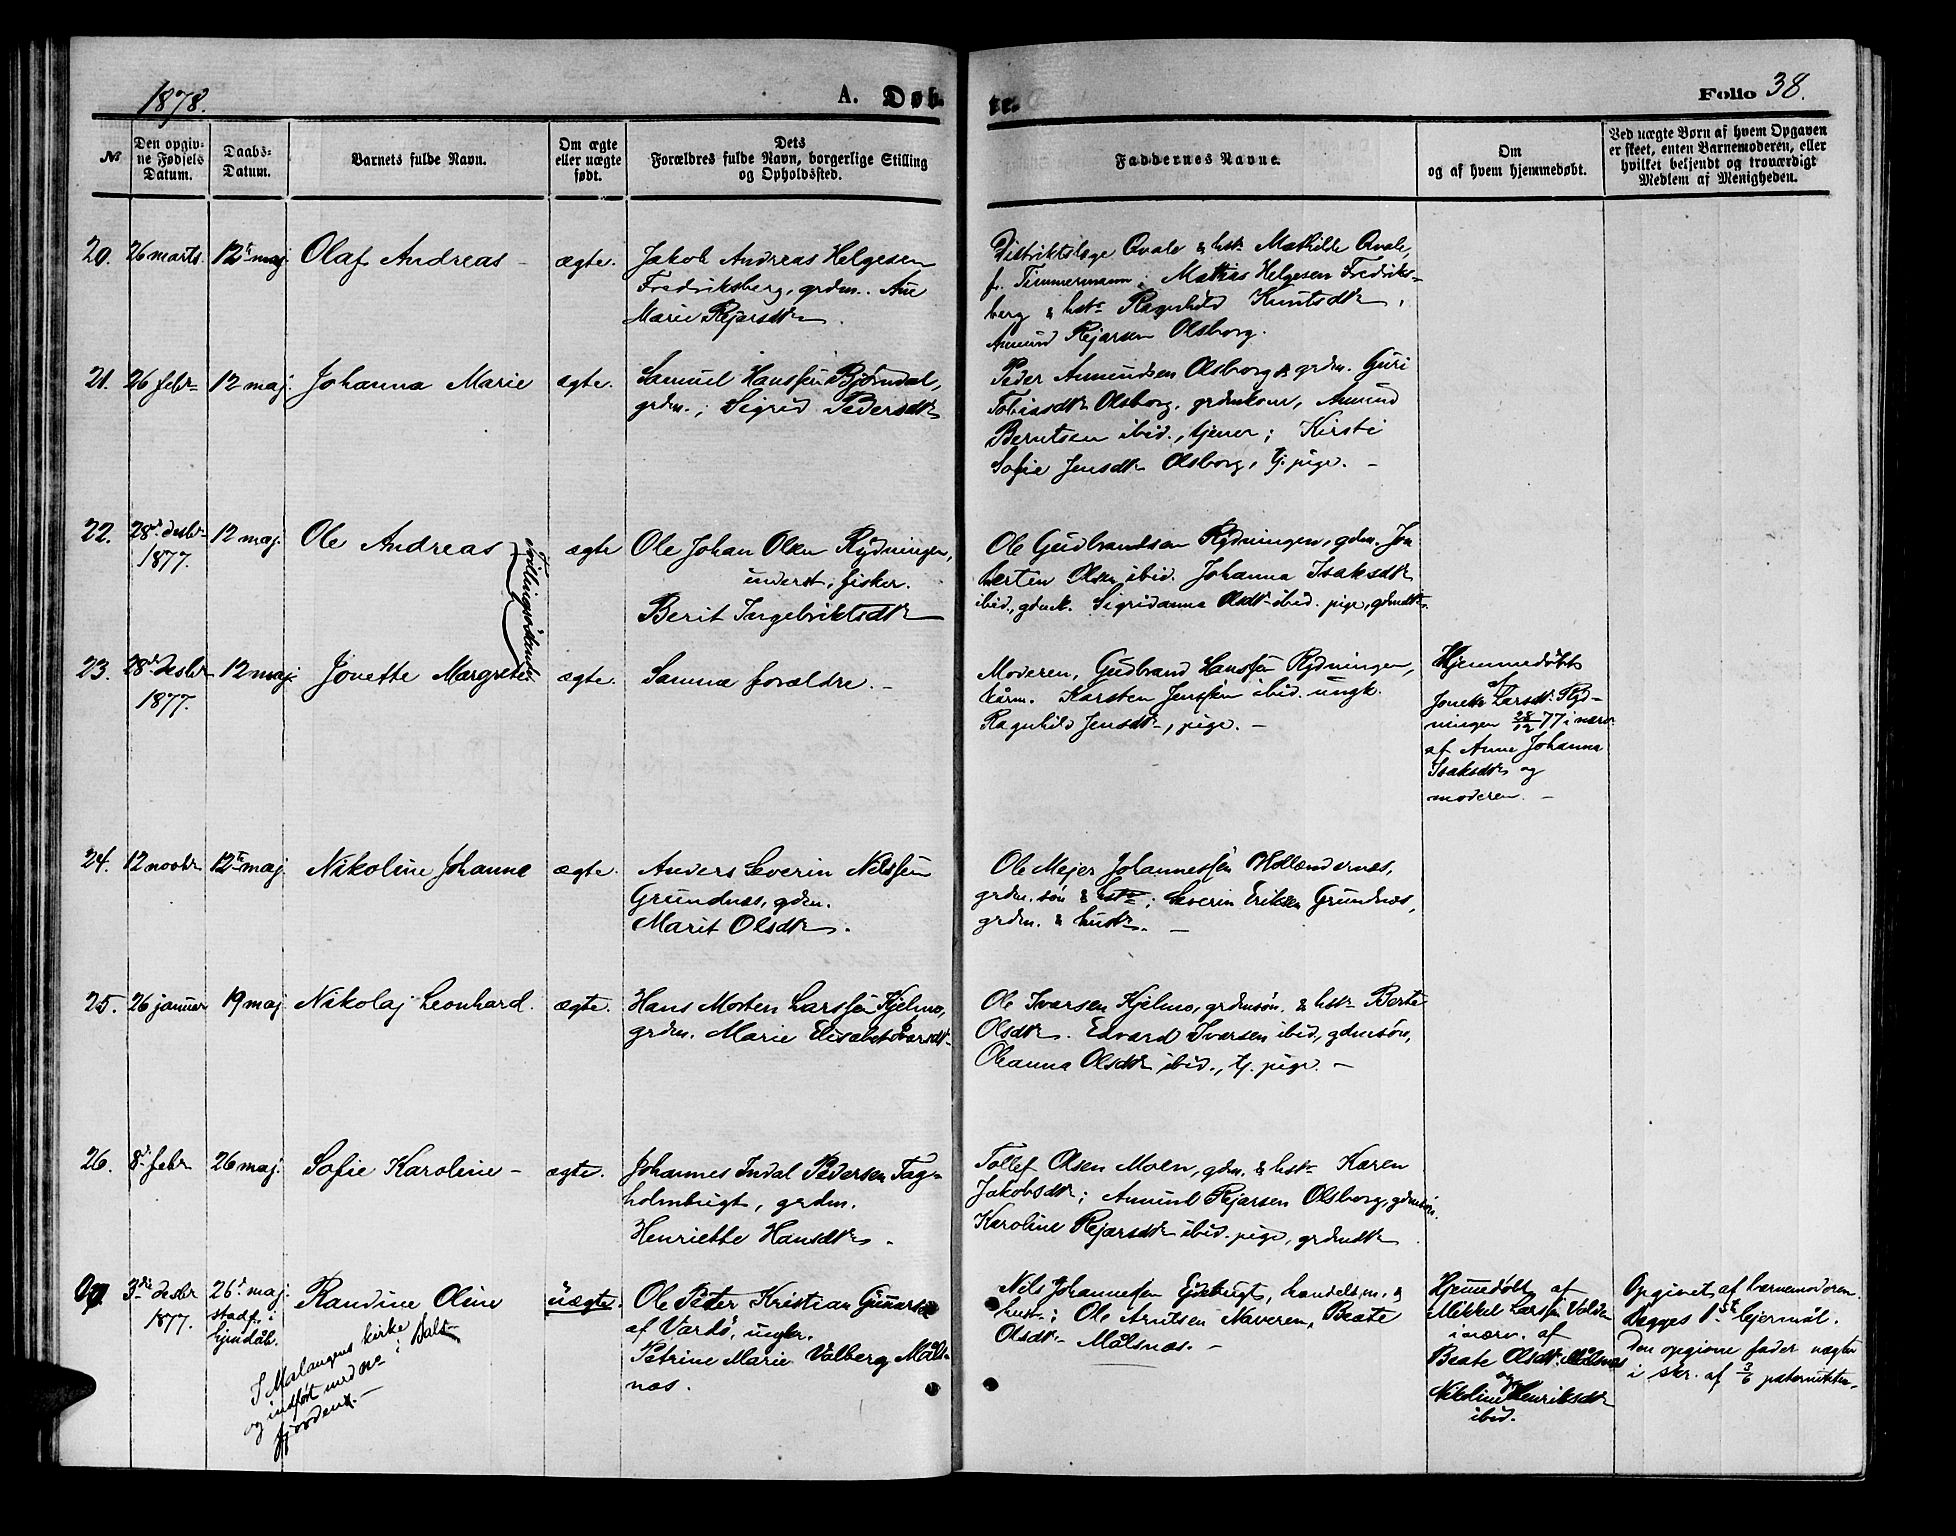 1878.
A. Døb-
te.
Folio 38.
№
Den opgiv-
ne Fødsels
Datum.
Daabs-
Datum.
Barnets fulde Navn.
Om ægte
eller uægte
født.
Dets
Forældres fulde Navn, borgerlige Stilling
og Opholdssted.
Faddernes Navne.
Om
og af hvem hjemmedøbt.
Ved uægte Børn af hvem Opgaven
er skeet, enten Barnemoderen, eller
hvilket bekjendt og troværdigt
Medlem af Menigheden.
20. 26 marts 12te maj Olaf Andreas - ægte. Jakob Andreas Helgesen
Fredriksberg, grdm. Ane
Marie Rejersdtr.
Distriktslæge Qvale & hstr Mathilde Qvale,
f. Timmermann; Mathias Helgesen Fredriks-
berg & hstr Ragnhild Knutsdtr,
Amund Rejersen Olsborg.
21. 26 febr 12 maj. Johanna Marie ægte. Samuel Hanssen Bjørndal,
grdm.; Sigrid Pedersdtr
Peder Amundsen Olsborg & grdm. Guri
Tobiasdtr Olsborg, grdmkone, Amund
Berntsen ibid., tjener; Kirsti
Sofie Jensdtr Olsborg, tj. pige. -
22. 28de desbr 1877. 12 maj. Ole Andreas ægte Ole Johan Olsen Rydningen,
inderst, fisker.
Berit Ingebriktsdtr
Tvillingsødskende
Ole Gudbrandsen Rydningen, gdm. Jon
berten Olsen ibid. Johanna Isaksdtr
ibid., gdmk. Sigridanna Olsdtr ibid. pige, gdmdtr.
23. 28de desbr 1877. 12 maj. Jonette Margrete ægte. Samme forældre. -
Moderen, Gudbrand Hanssen Rydningen,
kårm. Karsten Jenssen ibid. ungk.
Ragnhild Jensdtr, pige. -
Hjemmedøbt
af
Jonette Larsdtr Ryd-
ningen 28/12 77 i nærv.
af Anne Johanna
Isaksdtr og
moderen. -
24. 12 novbr 12te maj. Nikoline Johanne ægte. Anders Severin Nilssen
Grundnes, gdm.
Marit Olsdtr.
Ole Mejer Johannessen Hollendernes,
grdm. søn & hstr; Severin Eriksen Grundnes,
grdm. & hustr. -
25. 26 januar 19 maj Nikolaj Leonhard. ægte. Hans Morten Larssen Kjelmo,
grdm. Marie Elisabet Ivarsdtr
Ole Ivarsen Kjelmo, grdmsøn. & hstr Berte
Olsdtr. Edvard Ivarsen ibid, gdmsøn,
Oleanna Olsdtr ibid., tj. pige. -
26. 8de febr 26 maj. Sofie Karoline - ægte. Johannes Indal Pedersen Tag-
holmbugt, grdm.
Henriette Hansdtr.
Tollef Olsen Moen, gdm. & hstr Karen
Jakobsdtr; Amund Rejersen Olsborg, gdmsøn.
Karoline Rejersdtr ibid. pige, grdmdtr
3die desbr 1877. 26de maj.
stadf. i
Randine Oline uægte. Ole Peter Kristian Gunarsen
af Vardø, ungkr.
Petrine Marie Valberg Måls-
nes.
I Malangens kirke
og indført med no i Dals-
fjorden. -
Nils Johannesen Gjesbugt, handelsm. &
hustr; Ole Arntsen Naveren, Beate
Olsdtr Målsnes. -
Hjemmedøbt af
Mikkel Larsen
i nærv. af
Beate Olsdtr Målsnes
og
Nikoline Henriksdtr
ibid.
Opgivet af barnemoderen.
Begges 1ste lejermål.
Den opgivne fader nægter
i skr. af 3/6 paterniteten.